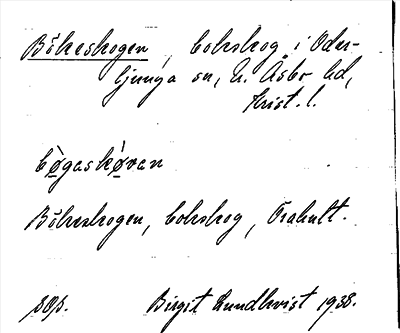 Bökeskogen, bokskog i Oder-
ljunga sn, N. Åsbo hd,
Krist. l.
bø̀gaskø̀van
Bökeskogen, bokskog, Trahult.
sOp. Birgit Lundkvist 1938.